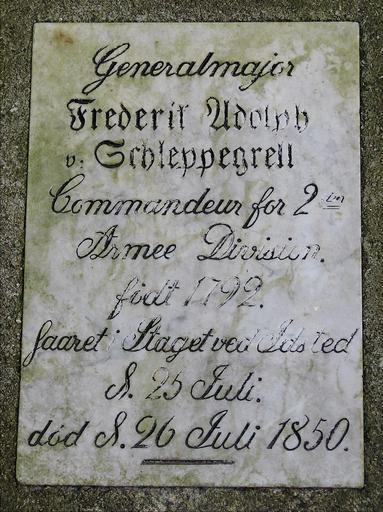 Generalmajor
Frederik Adolph
v. Schleppegrell
Commandeur for 2den
Armee Division.
födt 1792.
saaret i Slaget ved Idsted
d. 25 Juli.
död d. 26 Juli 1850.